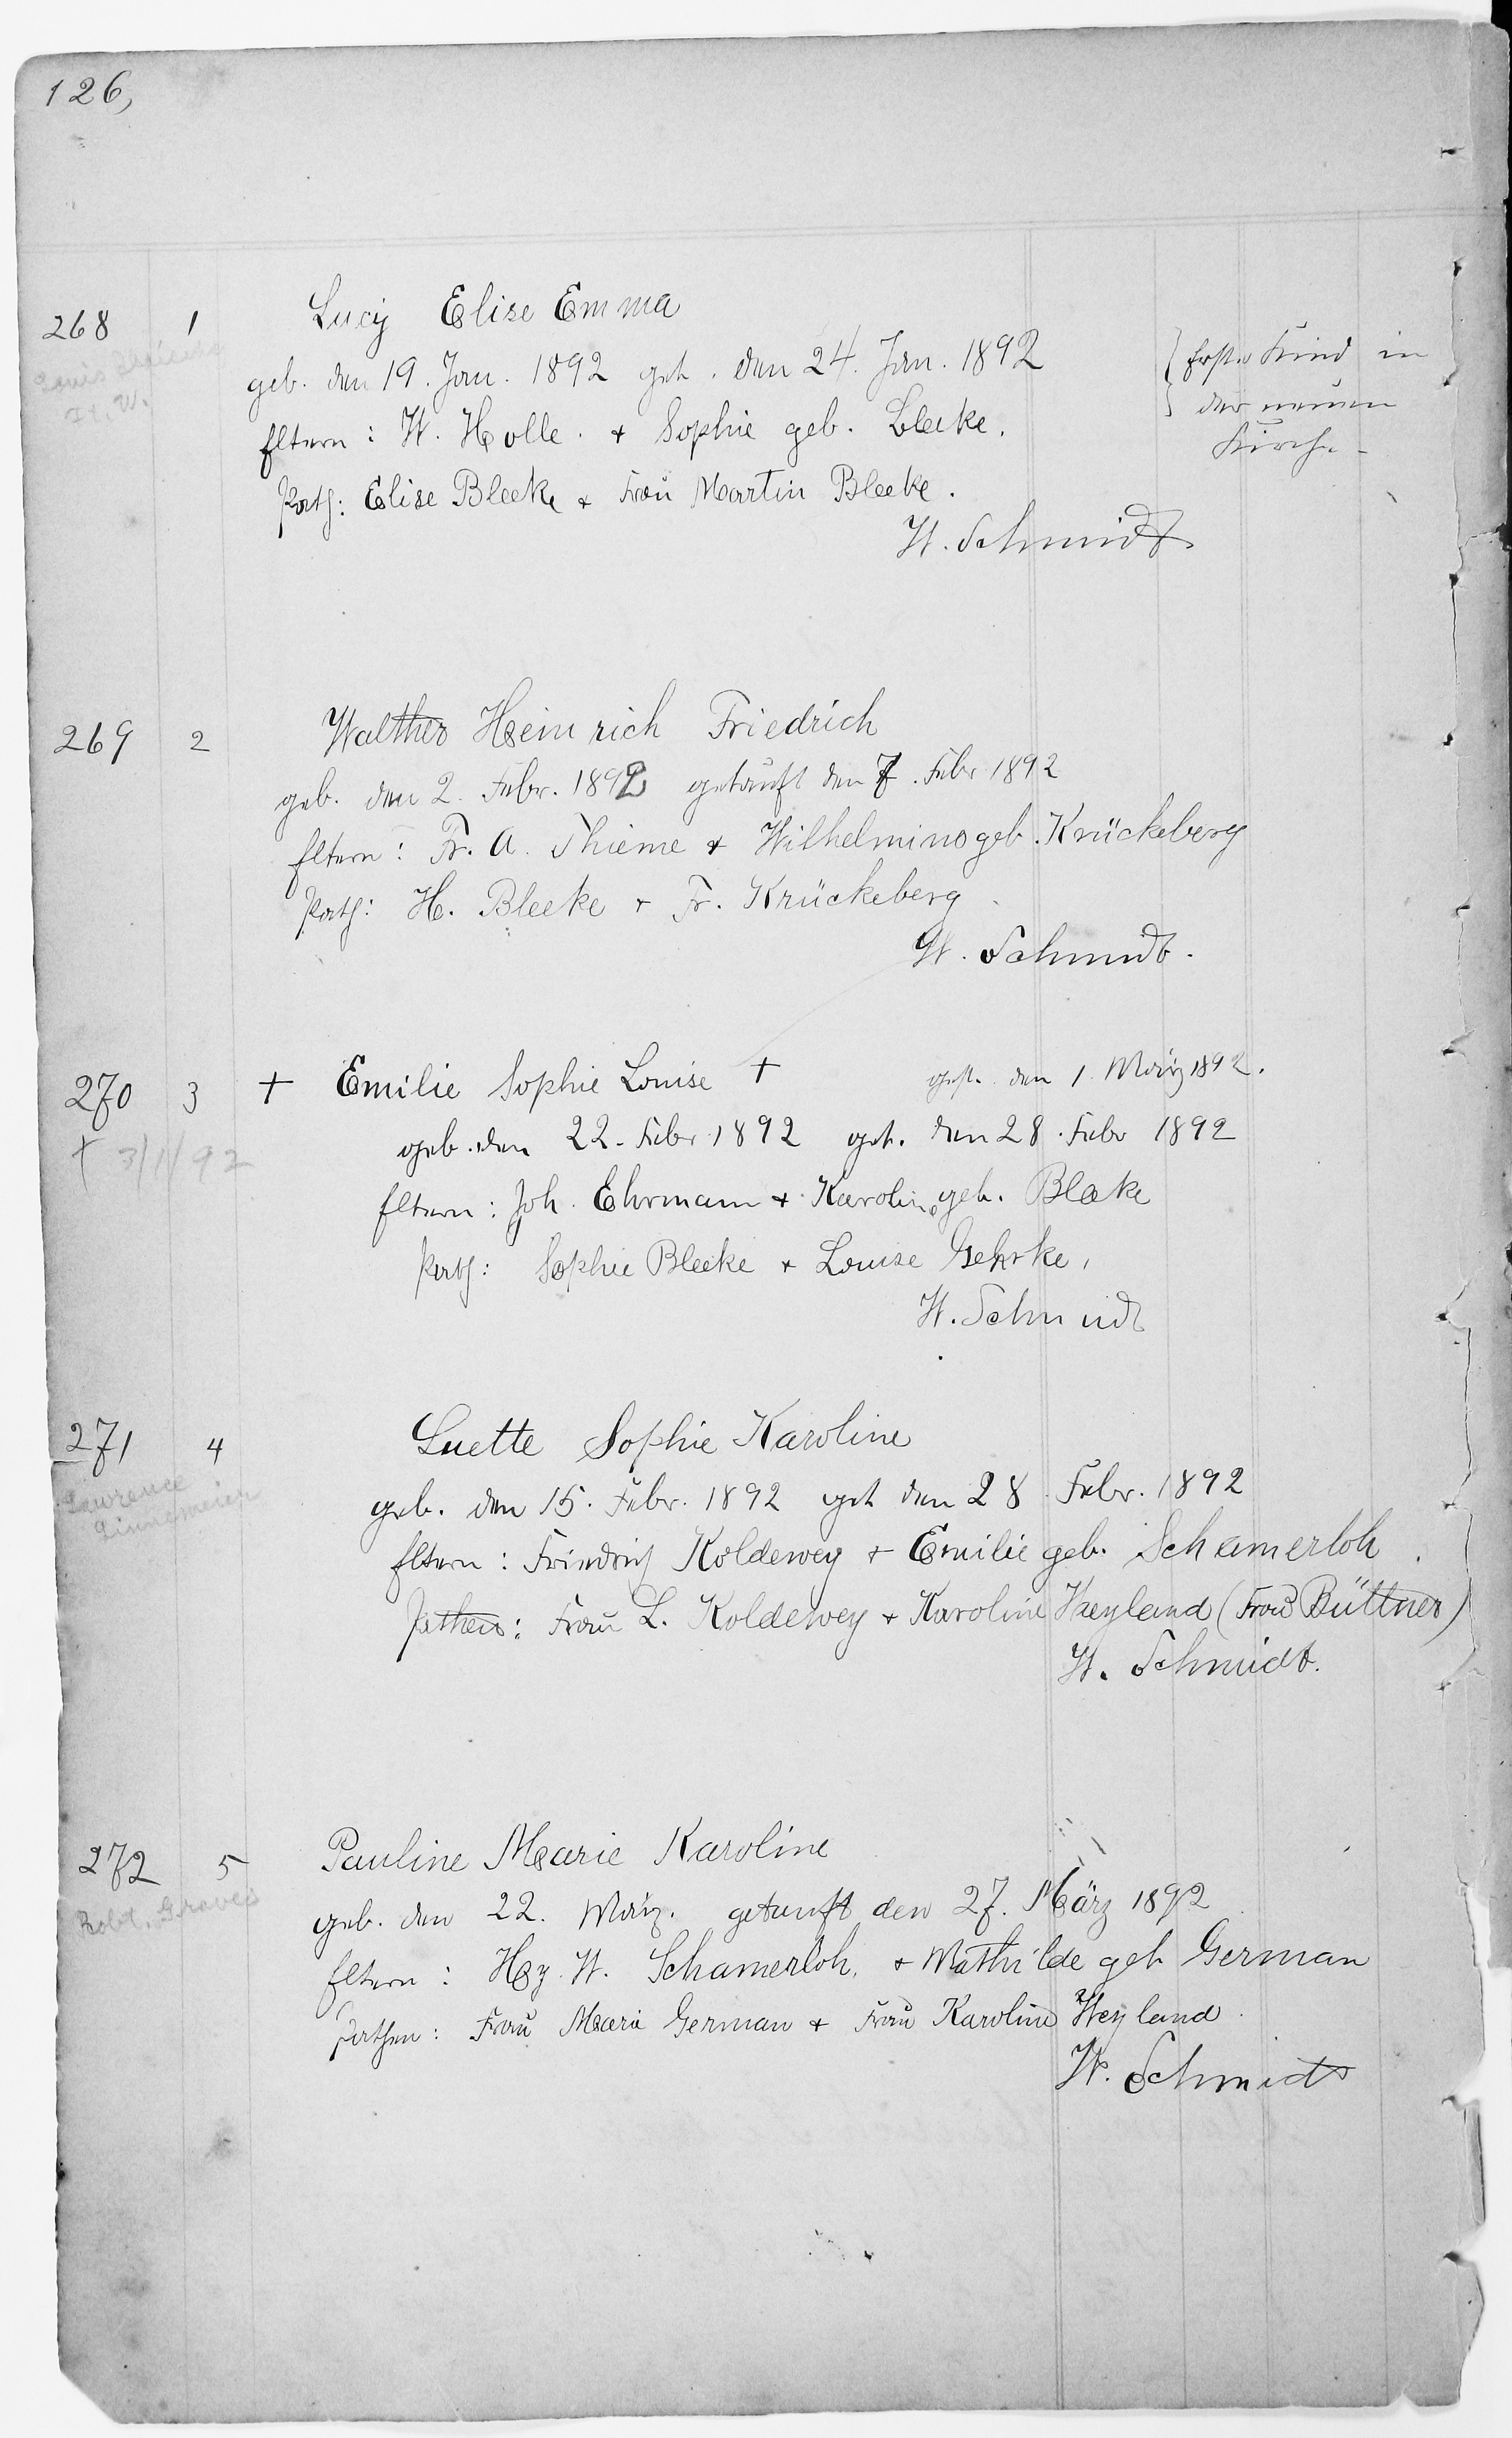 126,
268 1 Lucy Elise Emma
geb. den 19. Jan. 1892 get. den 24. Jan. 1892
Eltern: W. Holle. + Sophie geb. Bleeke.
Path: Elise Bleeke + Frau Martin Bleeke.
W. Schmidt
Erstes Kind in
der neuen
Kirche -
269 2 Walther Heinrich Friedrich
geb. den 2. Febr. 1892 getauft den 7. Febr 1892
Eltern: Fr. A. Thieme + Wilhelmine geb. Krückeberg
Path: H. Bleeke + Fr. Krückeberg
W. Schmidt.
270 3 + Emilie Sophie Louise + gest. den 1. März 1892.
+ 3/1/92
geb. den 22. Febr 1892 get. den 28. Febr 1892
Eltern: Joh. Ehrmann + Karoline geb. Bleeke
Path: Sophie Bleeke + Louise Gehrke,
W. Schmidt
271 4 Luette Sophie Karoline
Lawrence
Ginnemeier
geb. den 15. Febr. 1892 get den 28 Febr. 1892
Eltern: Friedrich Koldewey + Emilie geb. Schamerloh.
Pathen: Frau L. Koldewey + Karoline Weyland (Frau Büttner)
W. Schmidt.
272 5 Pauline Marie Karoline
Robt. Graves
geb. den 22. März. getauft den 27. März 1892
Eltern: Hy. W. Schamerloh, + Mathilde geb German
Pathen: Frau Marie German + Frau Karoline Weyland
W. Schmidt